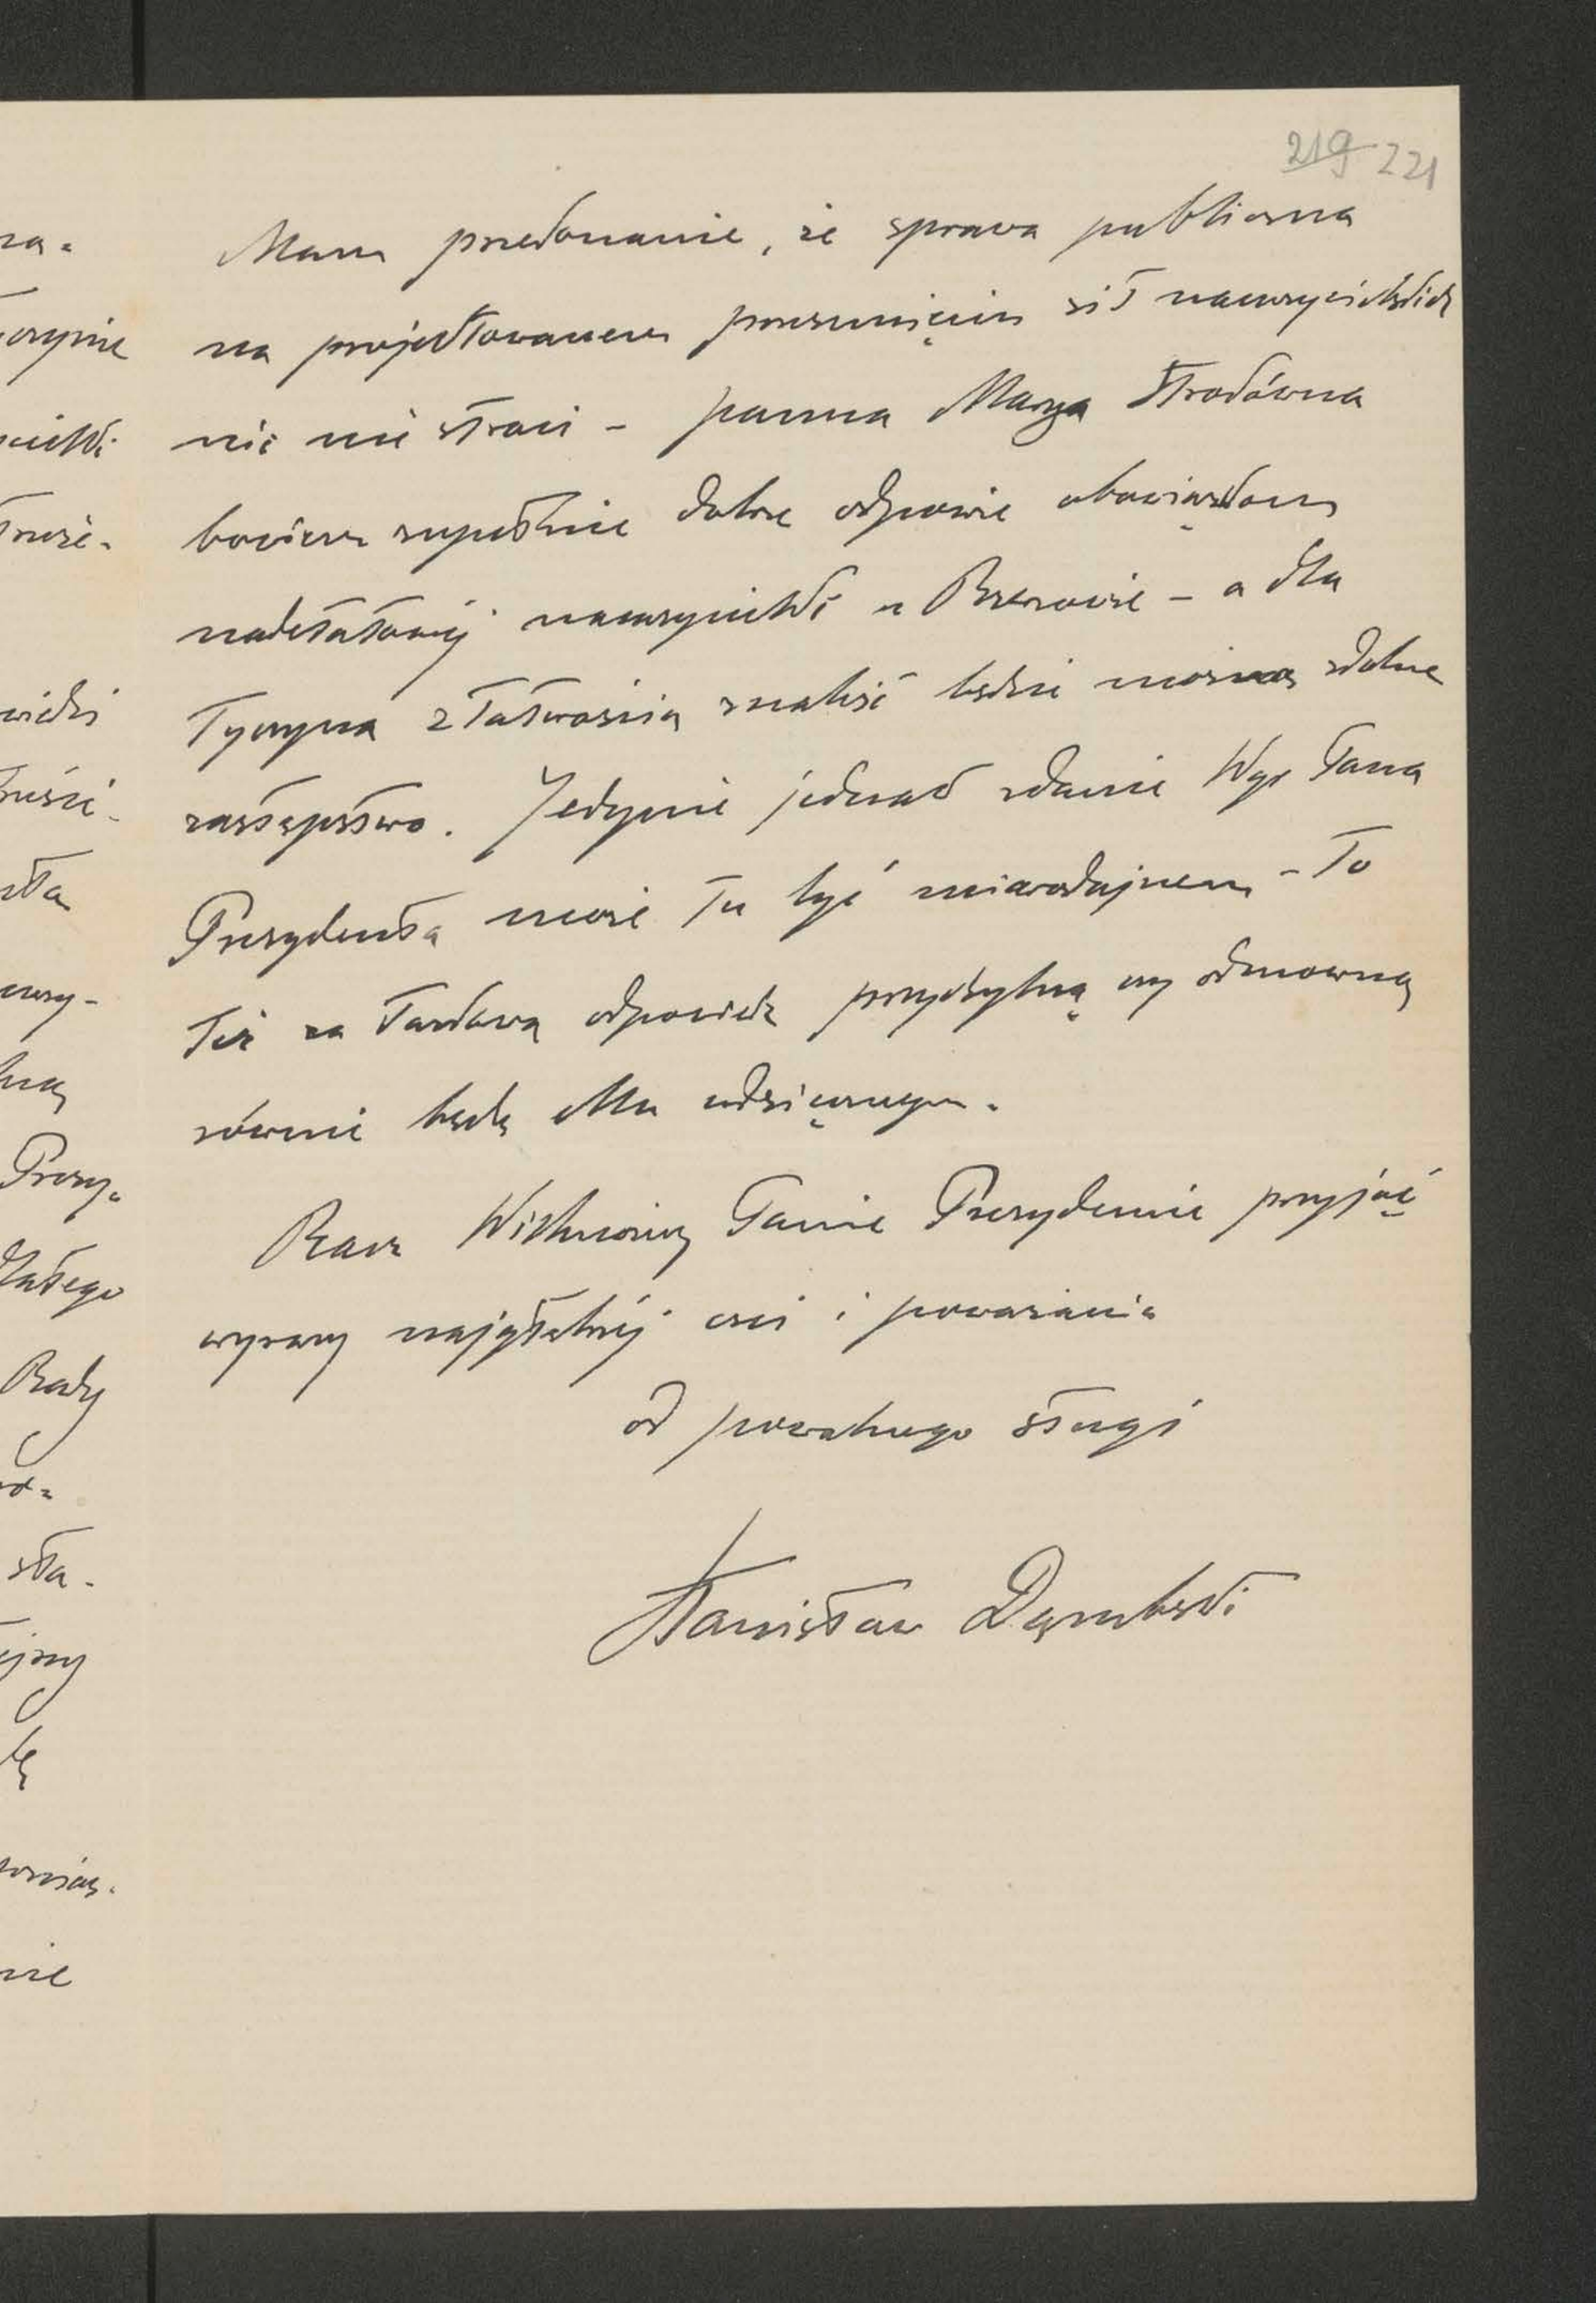 219 221
Mam przekonanie, że sprawa publiczna
na projektowanem przesunięciu sił nauczycielskich
nic nie straci – panna Marya
bowiem zupełnie dobrze odpowie obowiązkom
nadetatowej nauczycielki w Rzeszowie – a dla
Tyczyna z łatwością znaleść będzie można zdolne
zastępstwo. Jedynie jednak zdanie Wgo Pana
Prezydenta może tu być miarodajnem – To
też za łaskawą odpowiedź przychylną czy odmowną
równie będę Mu wdzięcznym.
Racz Wielmożny Panie Prezydencie przyjąć
wyrazy najgłębszej czci i poważania
od powolnego sługi
Stanisław Dąmbski